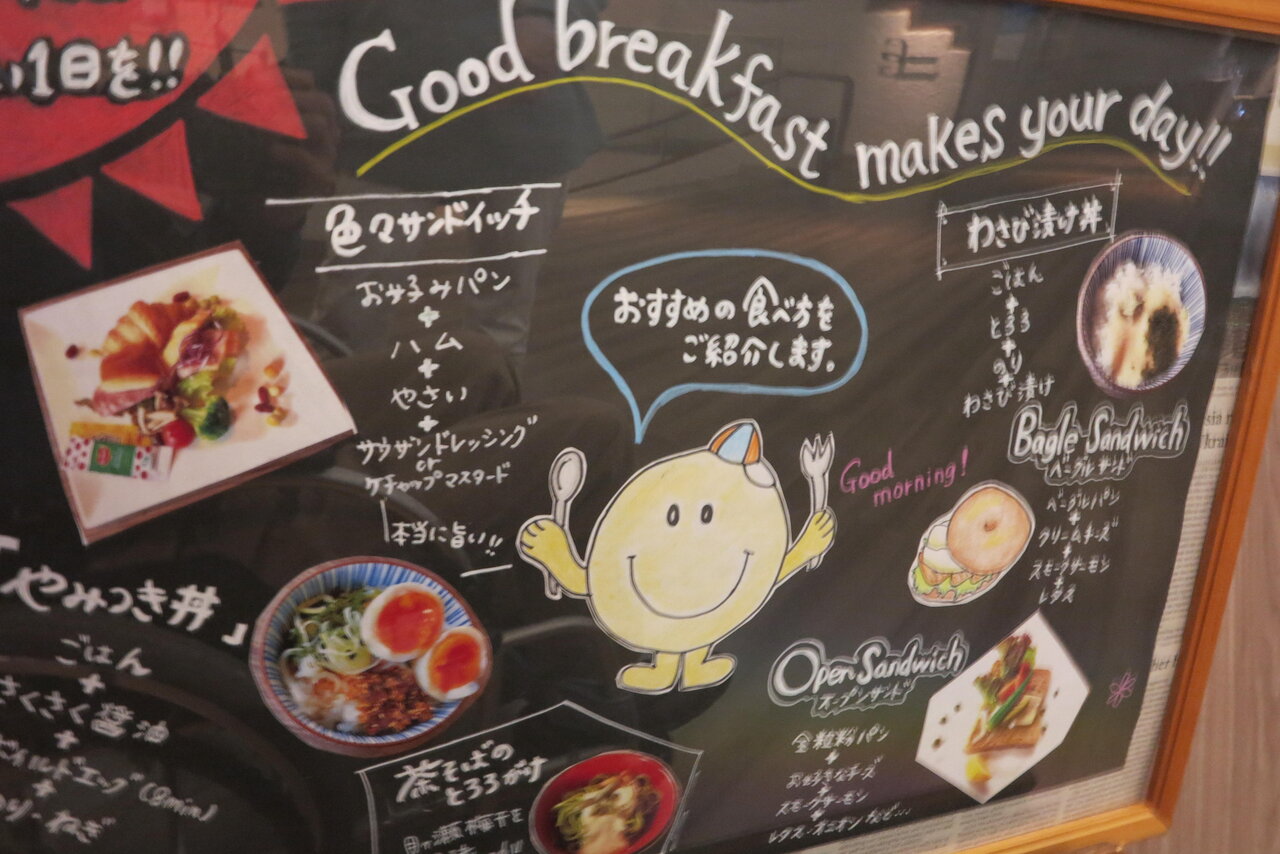 い1日を!!
Good breakfast makes your day!!
色々サンドイッチ
お好みパン
+
ハム
+
やさい
+
サウザンドレッシング
or
ケチャップマスタード
本当に旨い!!
おすすめの食べ方を
ご紹介します。
わさび漬け丼
ごはん
+
とろろ
+
のり
+
わさび漬け
Good
morning!
Bagle Sandwich
ベーグルサンド
ベーグルパン
+
クリームチーズ
+
スモークサーモン
+
レタス
「やみつき丼」
ごはん
+
さくさく醤油
+
ボイルドエッグ(8min)
+
のり・ねぎ
茶そばの
とろろがけ
Open Sandwich
オープンサンド
全粒粉パン
+
お好きなチーズ
+
スモークサーモン
+
レタス・オニオンなど…